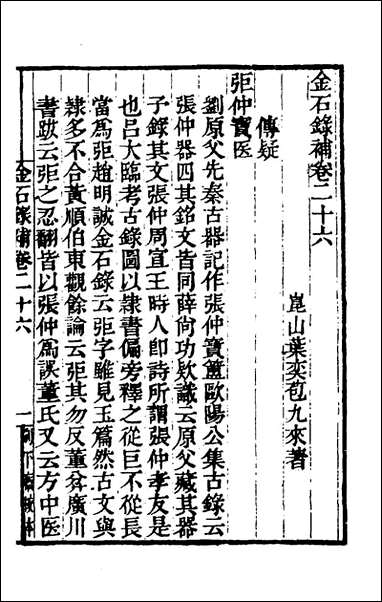 金石錄補卷二十六
崑山葉奕苞九來著
傳疑
弡仲寶医
劉原父先秦古器記作張仲寶簠歐陽公集古錄云
張仲器四其銘文皆同薛尚功欵識云原父藏其器
子錄其文張仲周宣王時人即詩所謂張仲孝友是
也呂大臨考古錄圖以隸書偏旁釋之從巨不從長
當為弡趙明誠金石錄云弡字雖見玉篇然古文與
隸多不合黃順伯東觀餘論云弡其勿反董㒹廣川
書跋云弡之忍翻皆以張仲為誤董氏又云方中医
金石錄補卷二十六
一